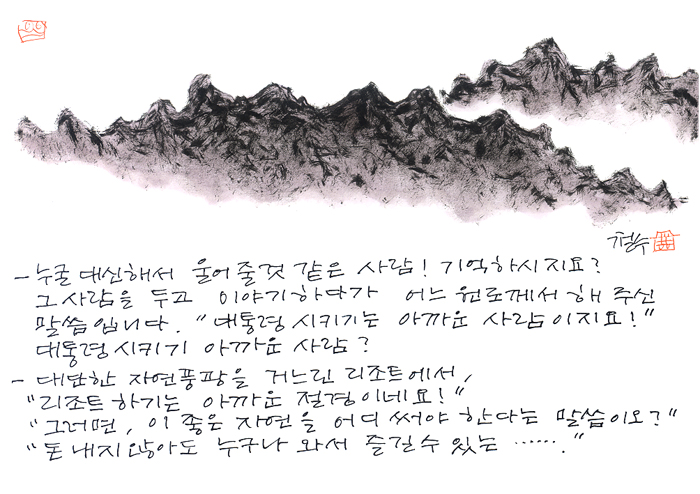 철수
- 누굴 대신해서 울어 줄것 같은 사람! 기억하시지요?
그 사람을 두고 이야기하다가 어느 원로께서 해 주신
말씀입니다. "대통령 시키기는 아까운 사람이지요!"
대통령 시키기 아까운 사람?
- 대단한 자연풍광을 거느린 리조트에서,
"리조트 하기는 아까운 절경이네요!"
"그러면, 이 좋은 자연을 어디 써야 한다는 말씀이오?"
"돈 내지 않아도 누구나 와서 즐길 수 있는 ……."